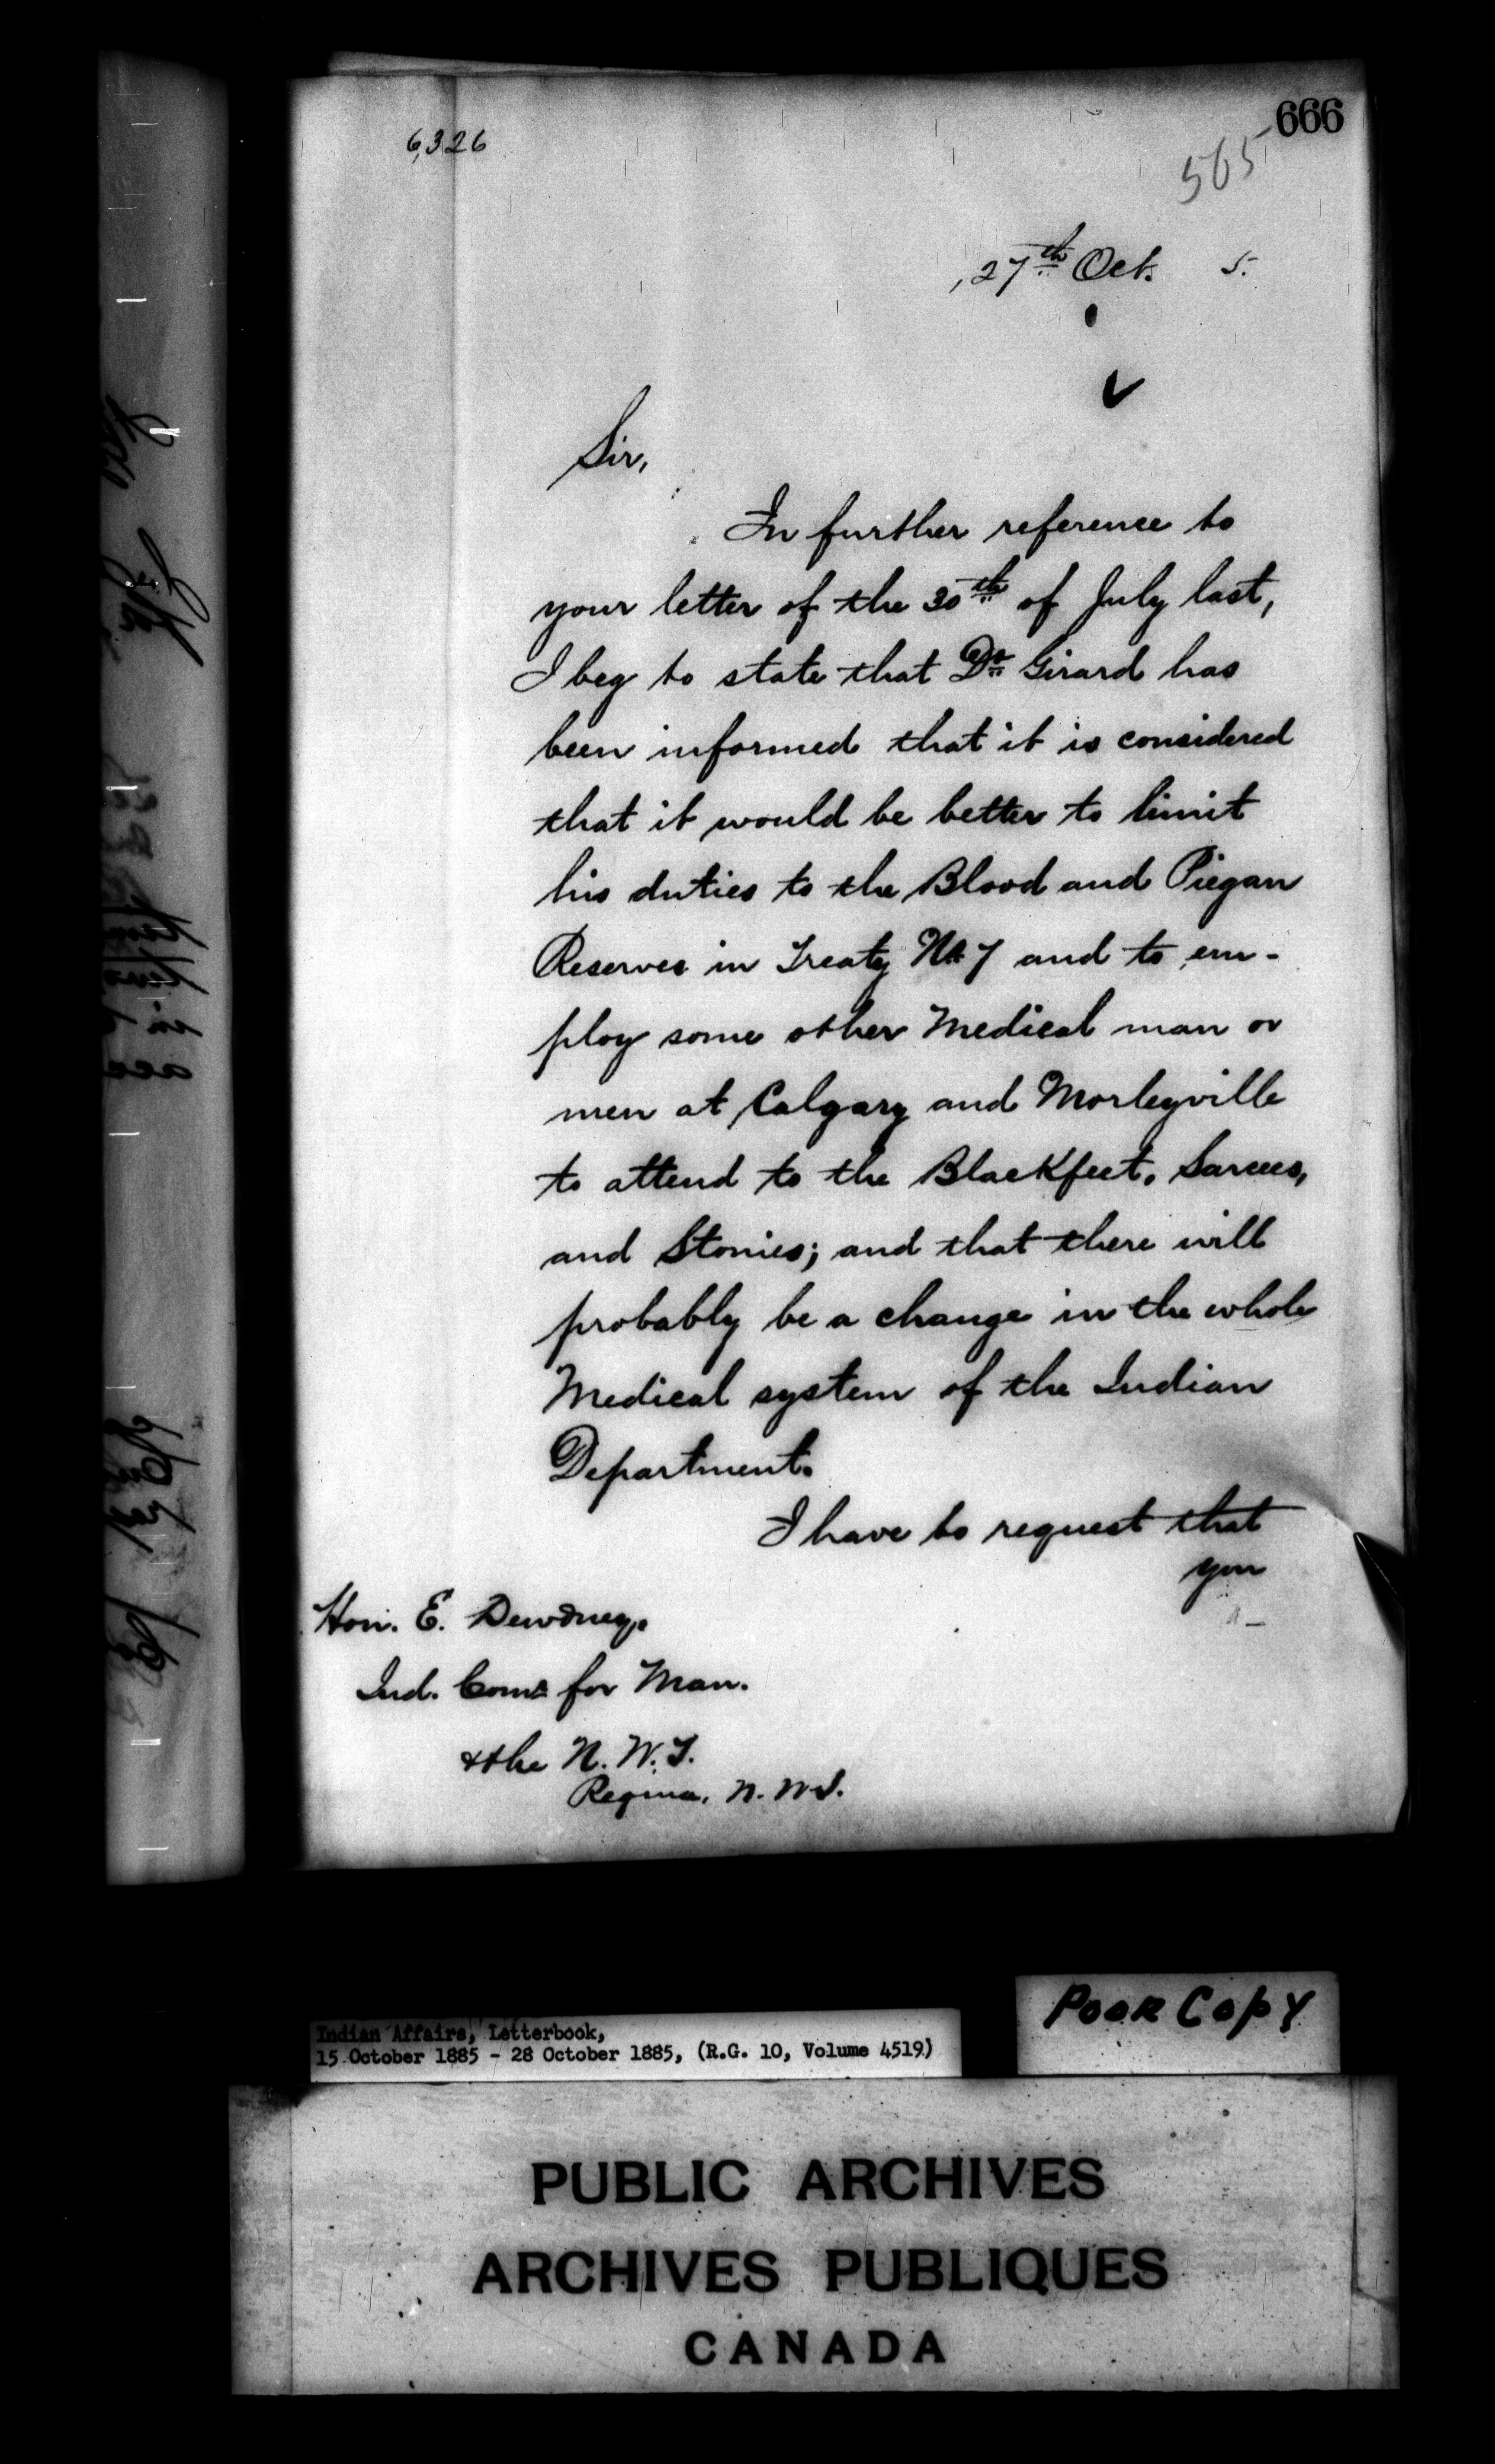 666
6,326
565
27th Oct. 5.
Sir,
In further reference to
your letter of the 30th of July last,
I beg to state that Dr Girard has
been informed that it is considered
that it would be better to limit
his duties to the Blood and Piegan
Reserves in Treaty No 7 and to em-
ploy some other Medical man or
men at Calgary and Morleyville
to attend to the Blackfeet, Sarcees,
and Stonies; and that there will
probably be a change in the whole
Medical system of the Indian
Department.
I have to request that
you
Hon. E. Dewdney,
Ind. Comr for Man.
& the N. W. T.
Regina, N. W. T.
Poor Copy
Indian Affairs, Letterbook,
15 October 1885 - 28 October 1885, (R.G. 10, Volume 4519)
PUBLIC ARCHIVES
ARCHIVES PUBLIQUES
CANADA